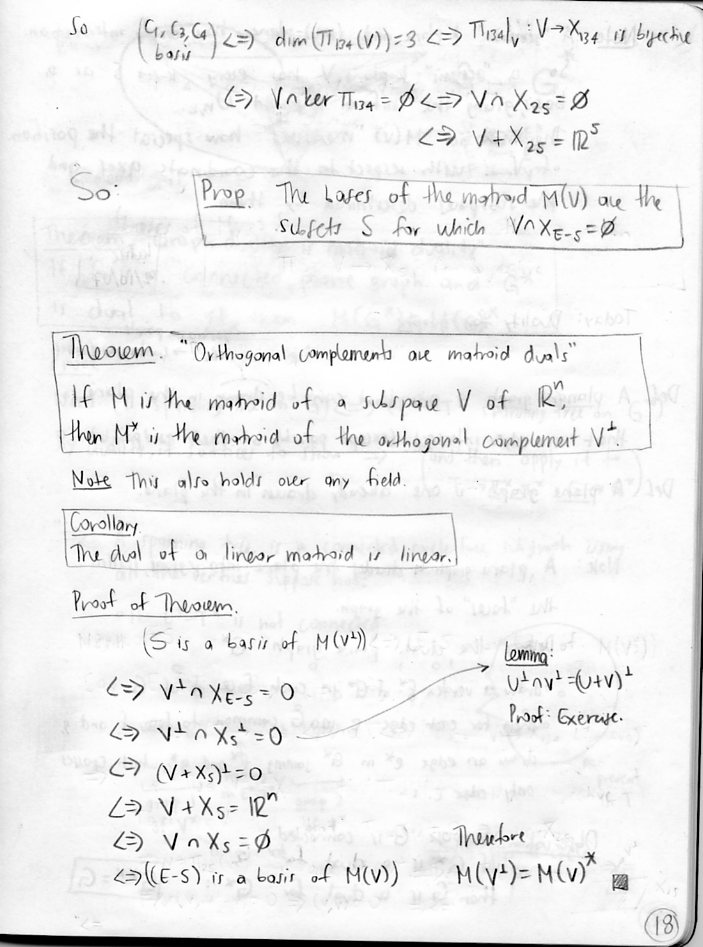 So (C₁, C₃, C₄ basis) <=> dim(π₁₃₄(V))=3 <=> π₁₃₄|ᵥ : V→X₁₃₄ is bijective
<=> V∩ker π₁₃₄ = ∅ <=> V∩X₂₅ = ∅
<=> V + X₂₅ = ℝ⁵
So: Prop. The bases of the matroid M(V) are the
subsets S for which V∩X_{E-S}=∅
Theorem. "Orthogonal complements are matroid duals"
If M is the matroid of a subspace V of ℝⁿ
then M* is the matroid of the orthogonal complement V^⊥
Note This also holds over any field.
Corollary.
The dual of a linear matroid is linear.
Proof of Theorem.
(S is a basis of M(V^⊥))
<=> V^⊥ ∩ X_{E-S} = 0
<=> V^⊥ ∩ X_S^⊥ = 0
<=> (V+X_S)^⊥ = 0
<=> V + X_S = ℝⁿ
<=> V ∩ X_S = ∅
<=> ((E-S) is a basis of M(V))
Lemma:
U^⊥∩V^⊥=(U+V)^⊥
Proof: Exercise.
Therefore
M(V^⊥) = M(V)*
18